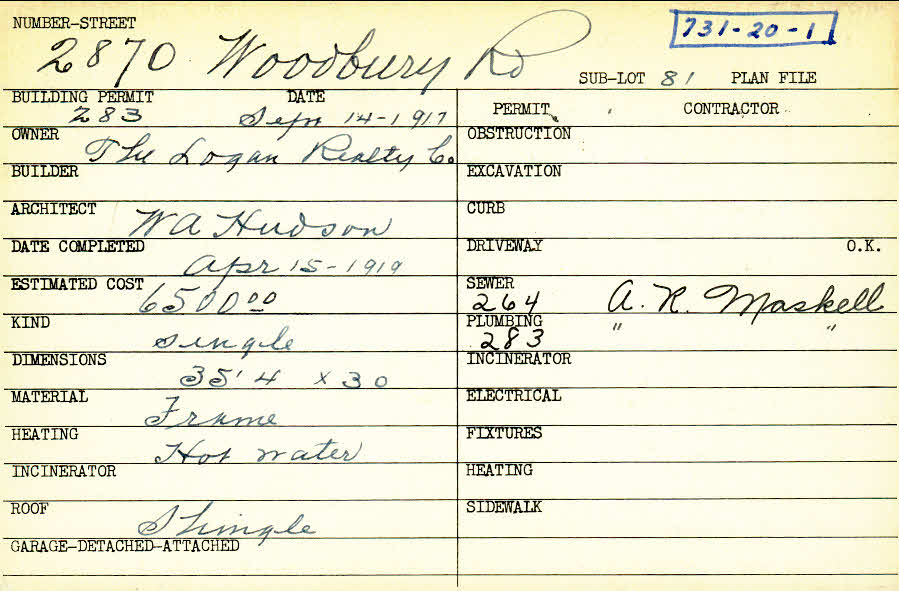 NUMBER-STREET
731-20-1
2870 Woodbury Rd
SUB-LOT 81 PLAN FILE
BUILDING PERMIT DATE
283 Sep 14-1917
PERMIT CONTRACTOR
OWNER
The Logan Realty Co.
OBSTRUCTION
BUILDER
EXCAVATION
ARCHITECT
W A Hudson
CURB
DATE COMPLETED
Apr 15-1919
DRIVEWAY O.K.
ESTIMATED COST
6500 00
SEWER
264 A. R. Maskell
KIND
single
PLUMBING
283 " "
DIMENSIONS
35'4 x 30
INCINERATOR
MATERIAL
Frame
ELECTRICAL
HEATING
Hot water
FIXTURES
INCINERATOR
HEATING
ROOF
Shingle
SIDEWALK
GARAGE-DETACHED-ATTACHED